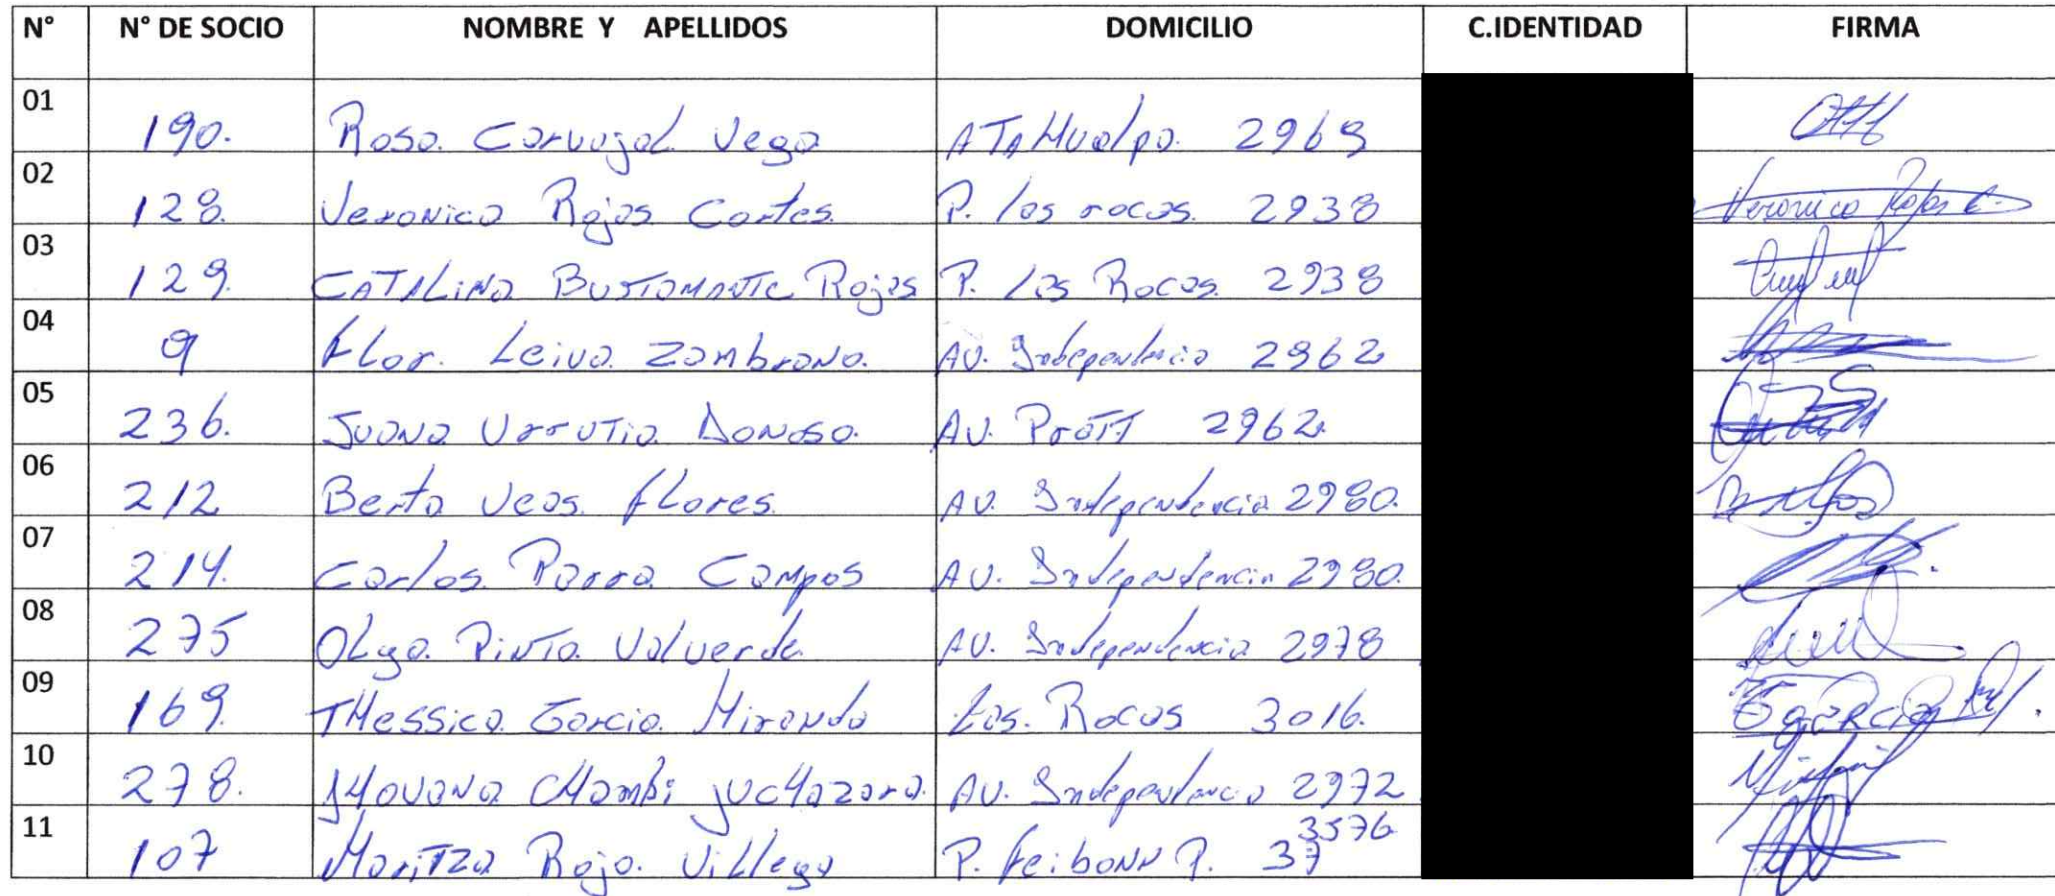 N° N° DE SOCIO NOMBRE Y APELLIDOS DOMICILIO C.IDENTIDAD FIRMA
01 190. Rosa Carvajal Vega ATAHualpa. 2969
02 128. Veronica Rojas Cortes. P. las rocas. 2938 Veronica Rojas C.
03 129. CATALINA BUSTAMANTE Rojas P. las Rocas. 2938
04 9 Flor. Leiva Zambrano. AV. Independencia 2962
05 236. JUANA URRUTIA DONOSO. AV. Pratt 2962.
06 212 Berta Veas. Flores. AV. Independencia 2980.
07 214. Carlos. Parra Campos AV. Independencia 2980.
08 275 Olga. Pinto Valverde AV. Independencia 2978
09 169. THessica Garcia. Miranda Las. Rocas 3016.
10 278. Mambi AV. Independencia 2972
11 107 Maritza Rojo. Villega P. 3576